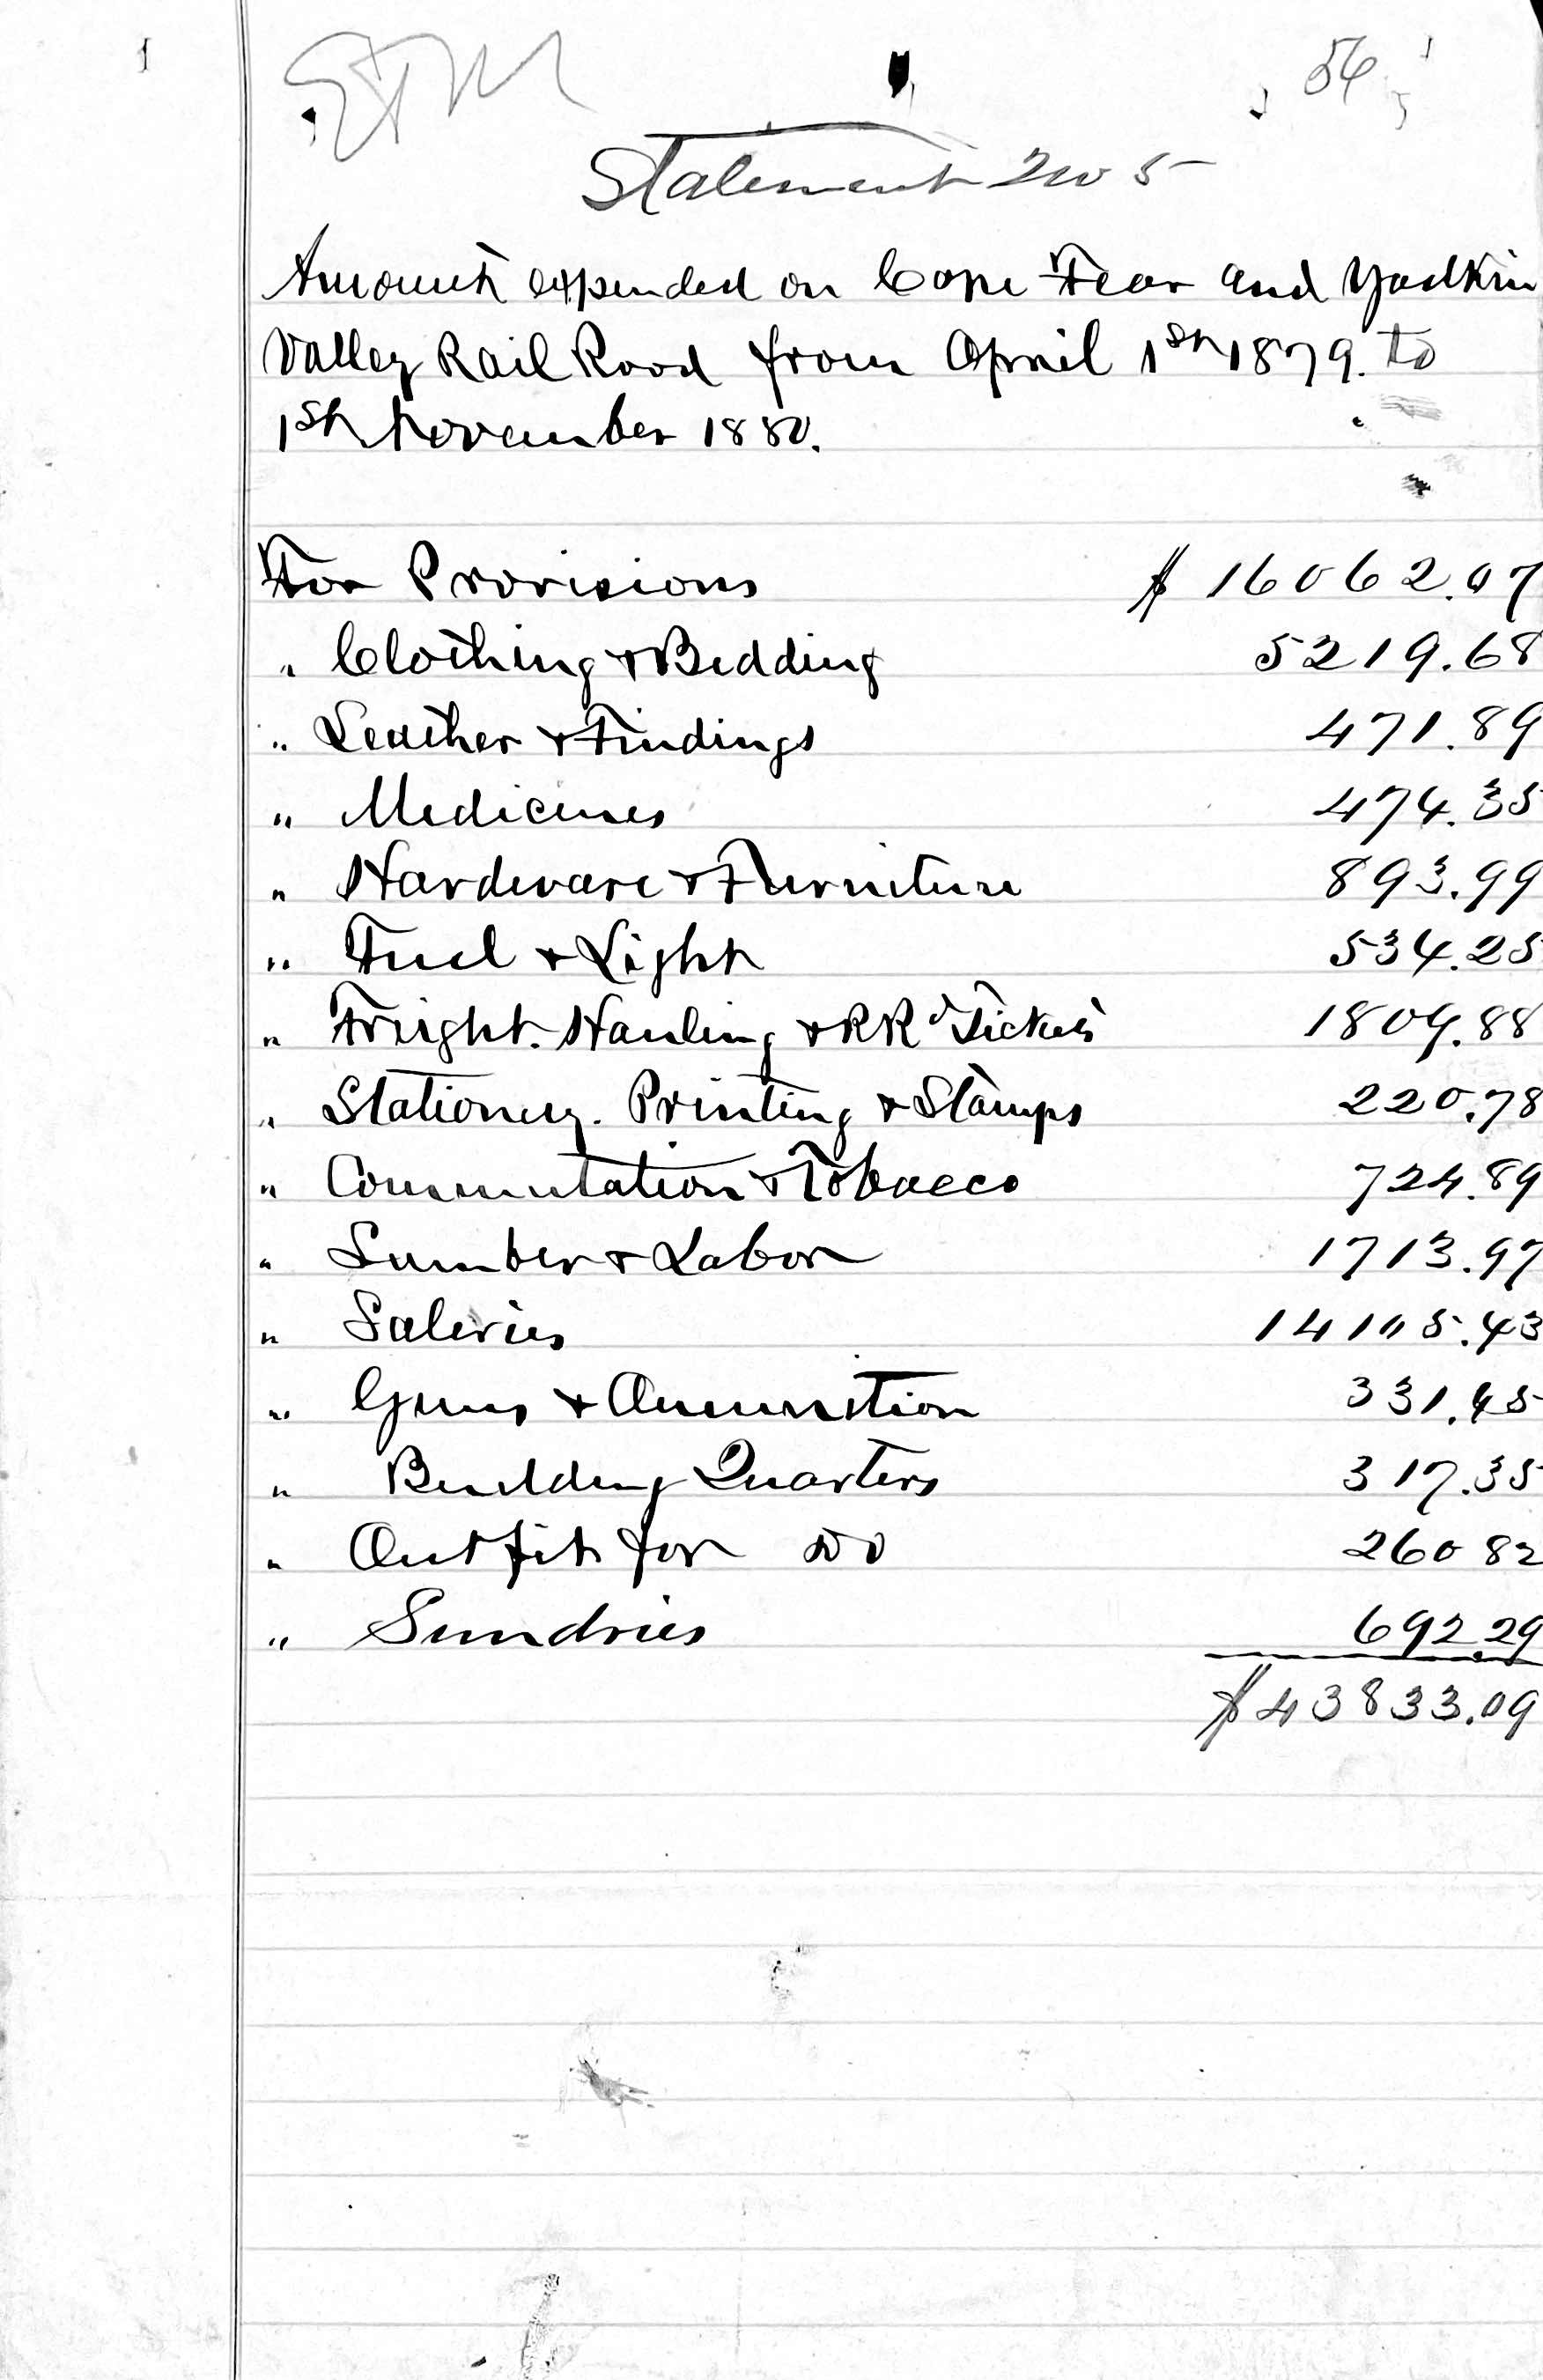 Statement No 5
Amount expended on Cape Fear and Yadkin
Valley Rail Road from April 1st 1879. to
1st November 1880.
For Provisions $ 16062.07
" Clothing & Bedding 5219.68
" Leather & Findings 471.89
" Medicines 474.35
" Hardware & Furniture 893.99
" Fuel & Light 534.25
" Freight. Hauling & RR Tickets 1809.88
" Stationery. Printing & Stamps 220.78
" Commutation & Tobacco 724.89
" Lumber & Labor 1713.97
" Saleries 14105.43
" Guns & Ammunition 331.45
" Building Quarters 317.35
" Outfit for Do 260 82
" Sundries 692.29
$43833.09